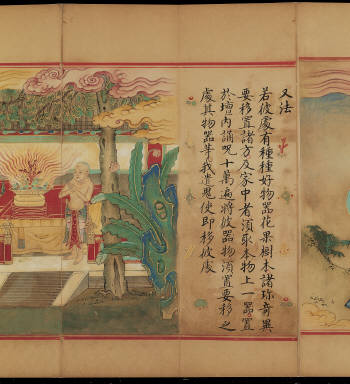 又法
若彼處有種種好物器花果樹木諸珎奇異
要移置諸方及家中者須取本物上一器置
於壇内誦呪十萬遍將彼器物須置要移之
處其物器等我遣鬼使即移彼處